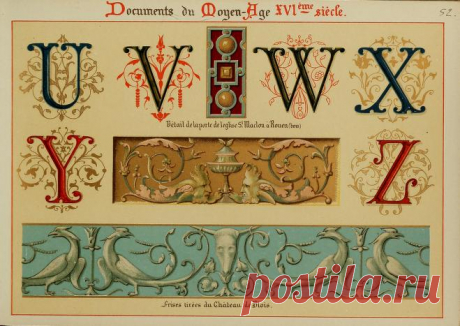 Documents du Moyen-Age XVIème siècle.
52.
U V W X
Détail de la porte de l'eglise St. Maclou à Rouen
Y Z
Frises tirées du Château de Blois.
postila.ru